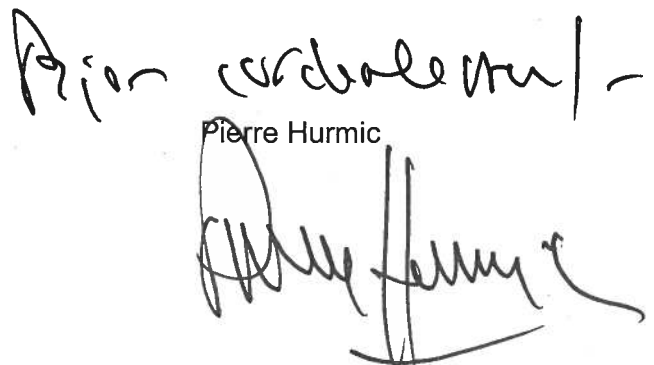 Bien cordialement
Pierre Hurmic
Pierre Hurmic